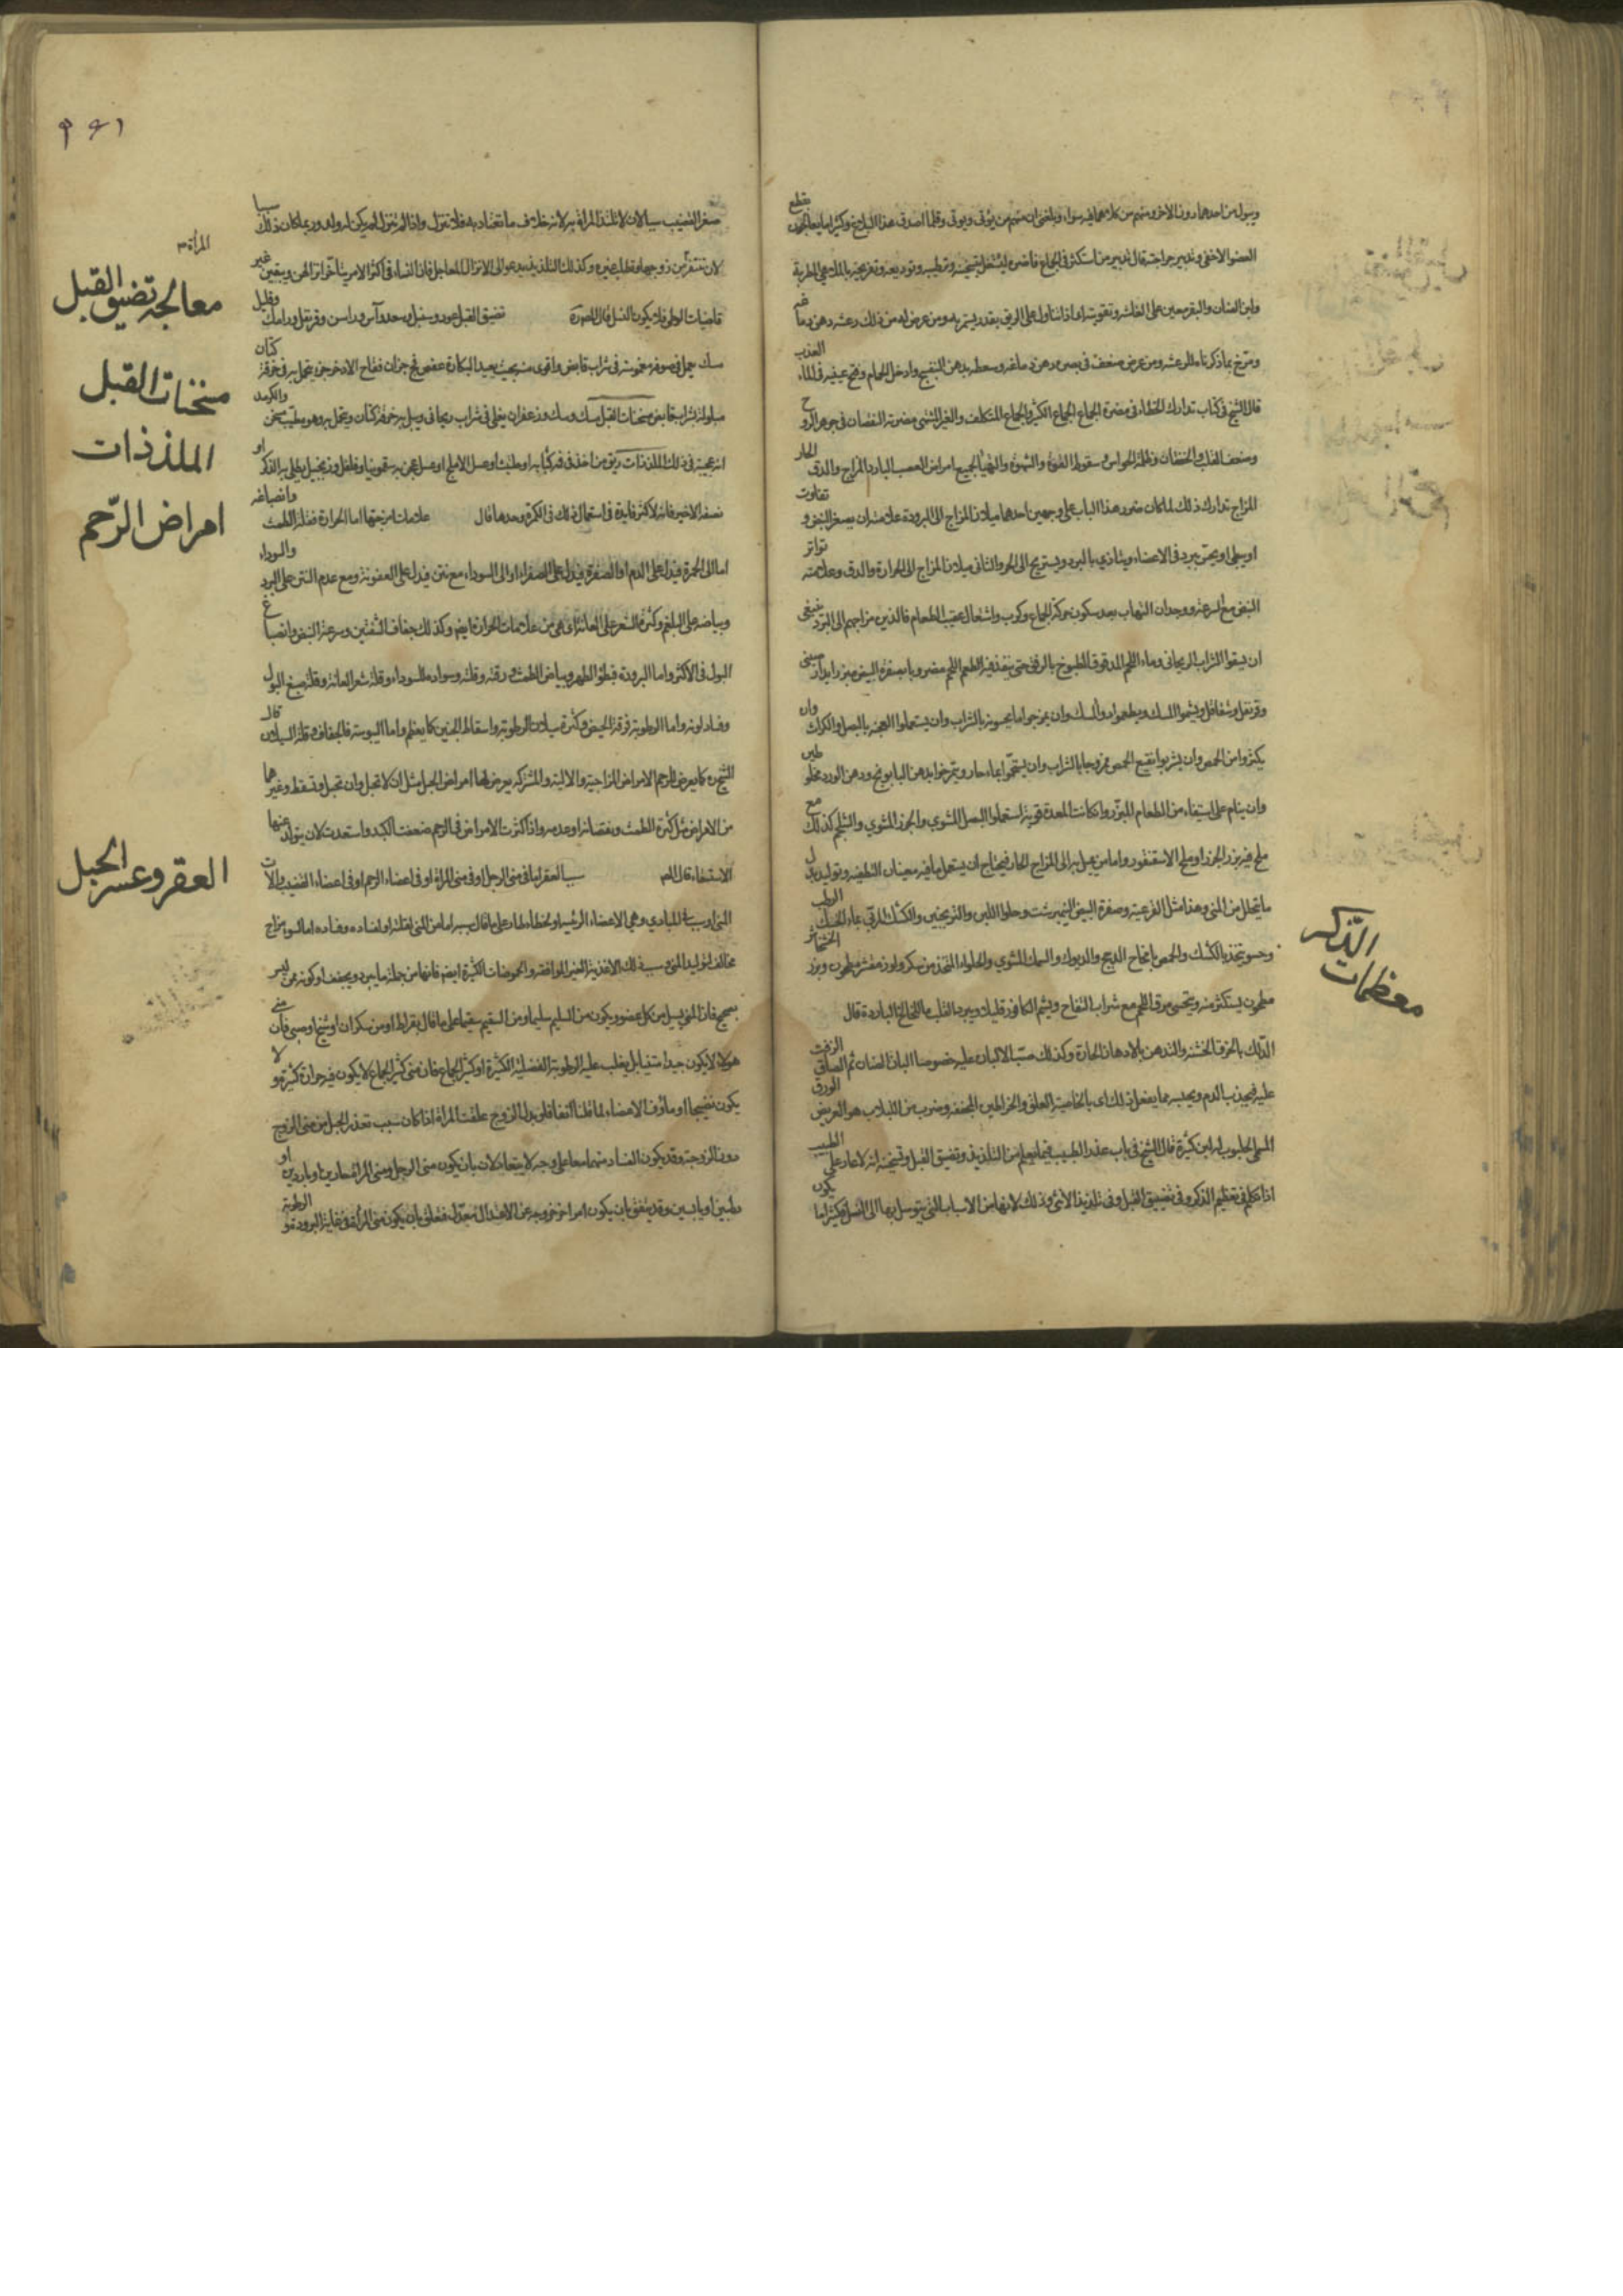 ويبوله من احدهما دون الاخر ومنهم من كلاهما فيه سواء وبلغنى ان منهم من يؤتى ويوتى وقلما اصدق هذا البلاغ وكثيرا ما يعالجون بقطع
العضو الاخفى وتدبير جراحته قال تدبير من استكثر فى الجماع فاضعفه ليشتغل بتسخينه وترطيبه وتوديعه وتفريحه بالملاهى المطربة
ولبن الضان والبقر معين على العناية وتقويته اى اذا تناول على الريق بقدر يستمريه ومن عرض له من ذلك رعشه دهن دماغه
ومرخ بما ذكرناه للرعشه ومن عرض ضعف فى بصره دهن دماغه وسعط بدهن البنفسج وادخل الحمام وفتح عينيه فى الماء العذب
قال الشيخ فى كتاب تدارك الخطاء فى مضرة الجماع الجماع الكثير والجماع المتكلف والغير المشتهى مضرته النقصان فى جوهر الروح
وضعف القلب والخفقان وظلمة الحواس وسقوط القوة والشهوة والتهيّأ لجميع امراض العصب البارد المزاج والدق الحار
المزاج تدارك ذلك لما كان ضرر هذا الباب على وجهين احدهما ميلان المزاج الى البرودة علامته ان يصغر النبض و تفاوت
او يبطى او يحس ببرد فى الاعضاء ويتاذى بالبرد ويستريح الى الحر والثانى ميلان المزاج الى الحرارة والدق وعلامته تواتر
النبض مع السرعة ووجدان التهاب بعد سكون حركة الجماع وكرب واشتعال عقيب الطعام فالذين مزاجهم الى البرد ينبغى
ان يسقوا الشراب الريحانى وماء اللحم المدقوق المطبوخ بالرفق حتى ينفذ فيه الطعم اللحم مضروبا بصفرة البيض مبزرا بدارصينى
وقرنفل وشقاقل ويشموا المسك ويطعموا دواء المسك وان يمزجوا ما يحسونه بالشراب وان يستعملوا العجة بالبصل والكراث وان
يكثروا من الحمص وان يشربوا نقيع الحمص ممزوجا بالشراب وان يستحمّوا بماء حار ويتمرخوا بدهن البابونج ودهن الورد مخلوطين
وان ينام على استيفاء من الطعام المبزر وان كانت المعدة قوية استعملوا البصل المشوى والجزر المشوى والشلجم كذلك مع
ملح فيه بزر الجزر او ملح الاسقنقور واما من يميل به الى المزاج الحار فيحتاج ان يستعمل ما فيه معينان التطفية وتوليد بدل
ما يتحلل من المنى وهذا مثل القرعية وصفرة البيض النيمبرشت وحلوا اللبن والترنجبين والكشك المربى بماء الخشك الرطب
وحسو يتخذ بالكشك والحمص بامخاخ الدجج والديوك والسمك المشوى والحلواء المتخذ من سكر ولوز مقشر مطحون وبزر الخشخاش
مطحون يستكثر منه ويحتسى مرق اللحم مع شراب التفاح ويشم الكافور قليلا ويبرد القلب باللخالخ الباردة قال
الدلك بالخرق الخشنة والتدهن بالادهان الحارة وكذلك صب الالبان عليه خصوصا البان الضان ثم الصاق الزفت
عليه فيجذب الدم ويحبسه مما يفعل ذلك اى بالخاصية العلق والخراطين المجففه وضرب من اللبلاب هو العريض الورق
المسمى الحلبوب له لبن كثير قال الشيخ فى باب عذر الطبيب فيما يعلم من التلذيذ وتضيق القبل وتسخينه انه لا عار على الطبيب
اذا تكلم فى تعظيم الذكر وفى تضييق القبل وفى تلذيذ الانثى وذلك لانها من الاسباب التى يتوسل بها الى النسل فكثيرا ما يكون
معظمات الذّكر
صغر القضيب سببا لان لا تلتذ المراة به لانه خلاف ما تعتاد به فلا تنزل واذا لم تنزل لم يكن له ولد وربما كان ذلك سببا
لان تنفر من زوجها وتطلب غيره وكذلك التلذيذ يدعو الى الانزال المعاجل فان النساء فى اكثر الامر يتاخر انزالهن ويبقين غير
قاضيات الوطر فلا يكون النسل قال المصنف تضيق القبل عود وسنبل وسعد وآس وراسن وقرنفل ورامك وقليل
مسك يحمل فى صوفة مغموسة فى شراب قابض واقوى منه بحيث يعيد البكارة عفص فج جزان فقاح الاذخر جزء يتحمل به فى خرقة كتان
مبلولة بشراب قابض مسخنات القبل مسك وسك وزعفران يغلى فى شراب ريحانى ويبل به خرقة كتان ويتحمل به وهو مطيب مسخن والكرمد
انه عجيبة فى ذلك الملذذات ريق من اخذ فى فيه كبابه او حلتيت او عسل الاملج او عسل عجن به سقمونيا وفلفل وزنجبيل يطلى به الذكر او
نصفه الاخير فانه لا كثير فايدة فى استعمال ذلك فى الكمرة وحدها قال علامات امزجتها اما الحرارة فقلة الطمث وانصباغه
اما الى الحمرة فيدل على الدم او الصفرة فيدل على الصفراء او الى السوداء مع نتن فيدل على العفونة ومع عدم النتن على البرد والسوداء
وبياضه على البلغم وكثرة الشعر على العانة اى هى من علامات الحرارة ايضا وكذلك جفاف الشفتين وسرعة النبض وانصباغ
البول فى الاكثر واما البرودة فبطؤ الطهر وبياض الطمث ورقته وقلته وسواده للسوداء وقلة شعر العانة وقلة صبغ البول
وفساد لونه واما الرطوبة فرقة الحيض وكثرة سيلان الرطوبة واسقاط الجنين كما يعظم واما اليبوسة فالجفاف وقلة السيلان قال
الشيخ كما يعرض للرحم الامراض المزاجية والالية والمشتركة يعرض لها امراض الحبل مثل ان لا تحبل وان تحبل وتسقط وغيرهما
من الاعراض مثل كثرة الطمث ونقصانه او عدمه واذا كثرت الامراض فى الرحم ضعفت الكبد واستعدت لان يتولد عنها
الاستسقاء قال المص سبب العقر اما فى منى الرجل او فى منى المراة او فى اعضاء الرحم او فى اعضاء القضيب والات
المنى او سبب فى المبادى وهى الاعضاء الرئيسية او لخطاء طار على ما قال سببه اما من المنى لقلته او لفساده وفساده اما لسوء مزاج
مخالف لتوليد المنى وسبب ذلك الاغذية الغير الموافقة والحموضات الكثيرة ايضا فانها من جملة ما يبرد ويجفف او كونه ممن ليس
بصحيح فان المنى يسيل من كل عضو ويكون من السليم سليما ومن السقيم سقيما على ما قال بقراط او من سكران او شيخ او صبى فان منى
هولاء لا يكون جيدا متينا بل يغلب عليه الرطوبة الفضلية الكثيرة او كثير الجماع فان منى كثير الجماع لا يكون فيه حرارة كثيرة ولا
يكون نضيجا او ماؤف الاعضاء لما قلنا انفا فلو بدل الزوج علقت المراة اذا كان سبب تعذر الحبل من منى الزوج
دون الزوجة وقد يكون الفساد منهما معا على وجه لا يتعادلان بان يكون منى الرجل ومنى المراة حارين او باردين او
رطبين او يابسين وقد يتفق بان يكون امزاج خروجه عن الاعتدال الى ضده فعلى بان يكون منى المراة فى غاية البرودة والرطوبة
١٤٩
المرأة
معالجة تضيق القبل
مسخنات القبل
الملذذات
امراض الرّحم
العقر وعسر الحبل